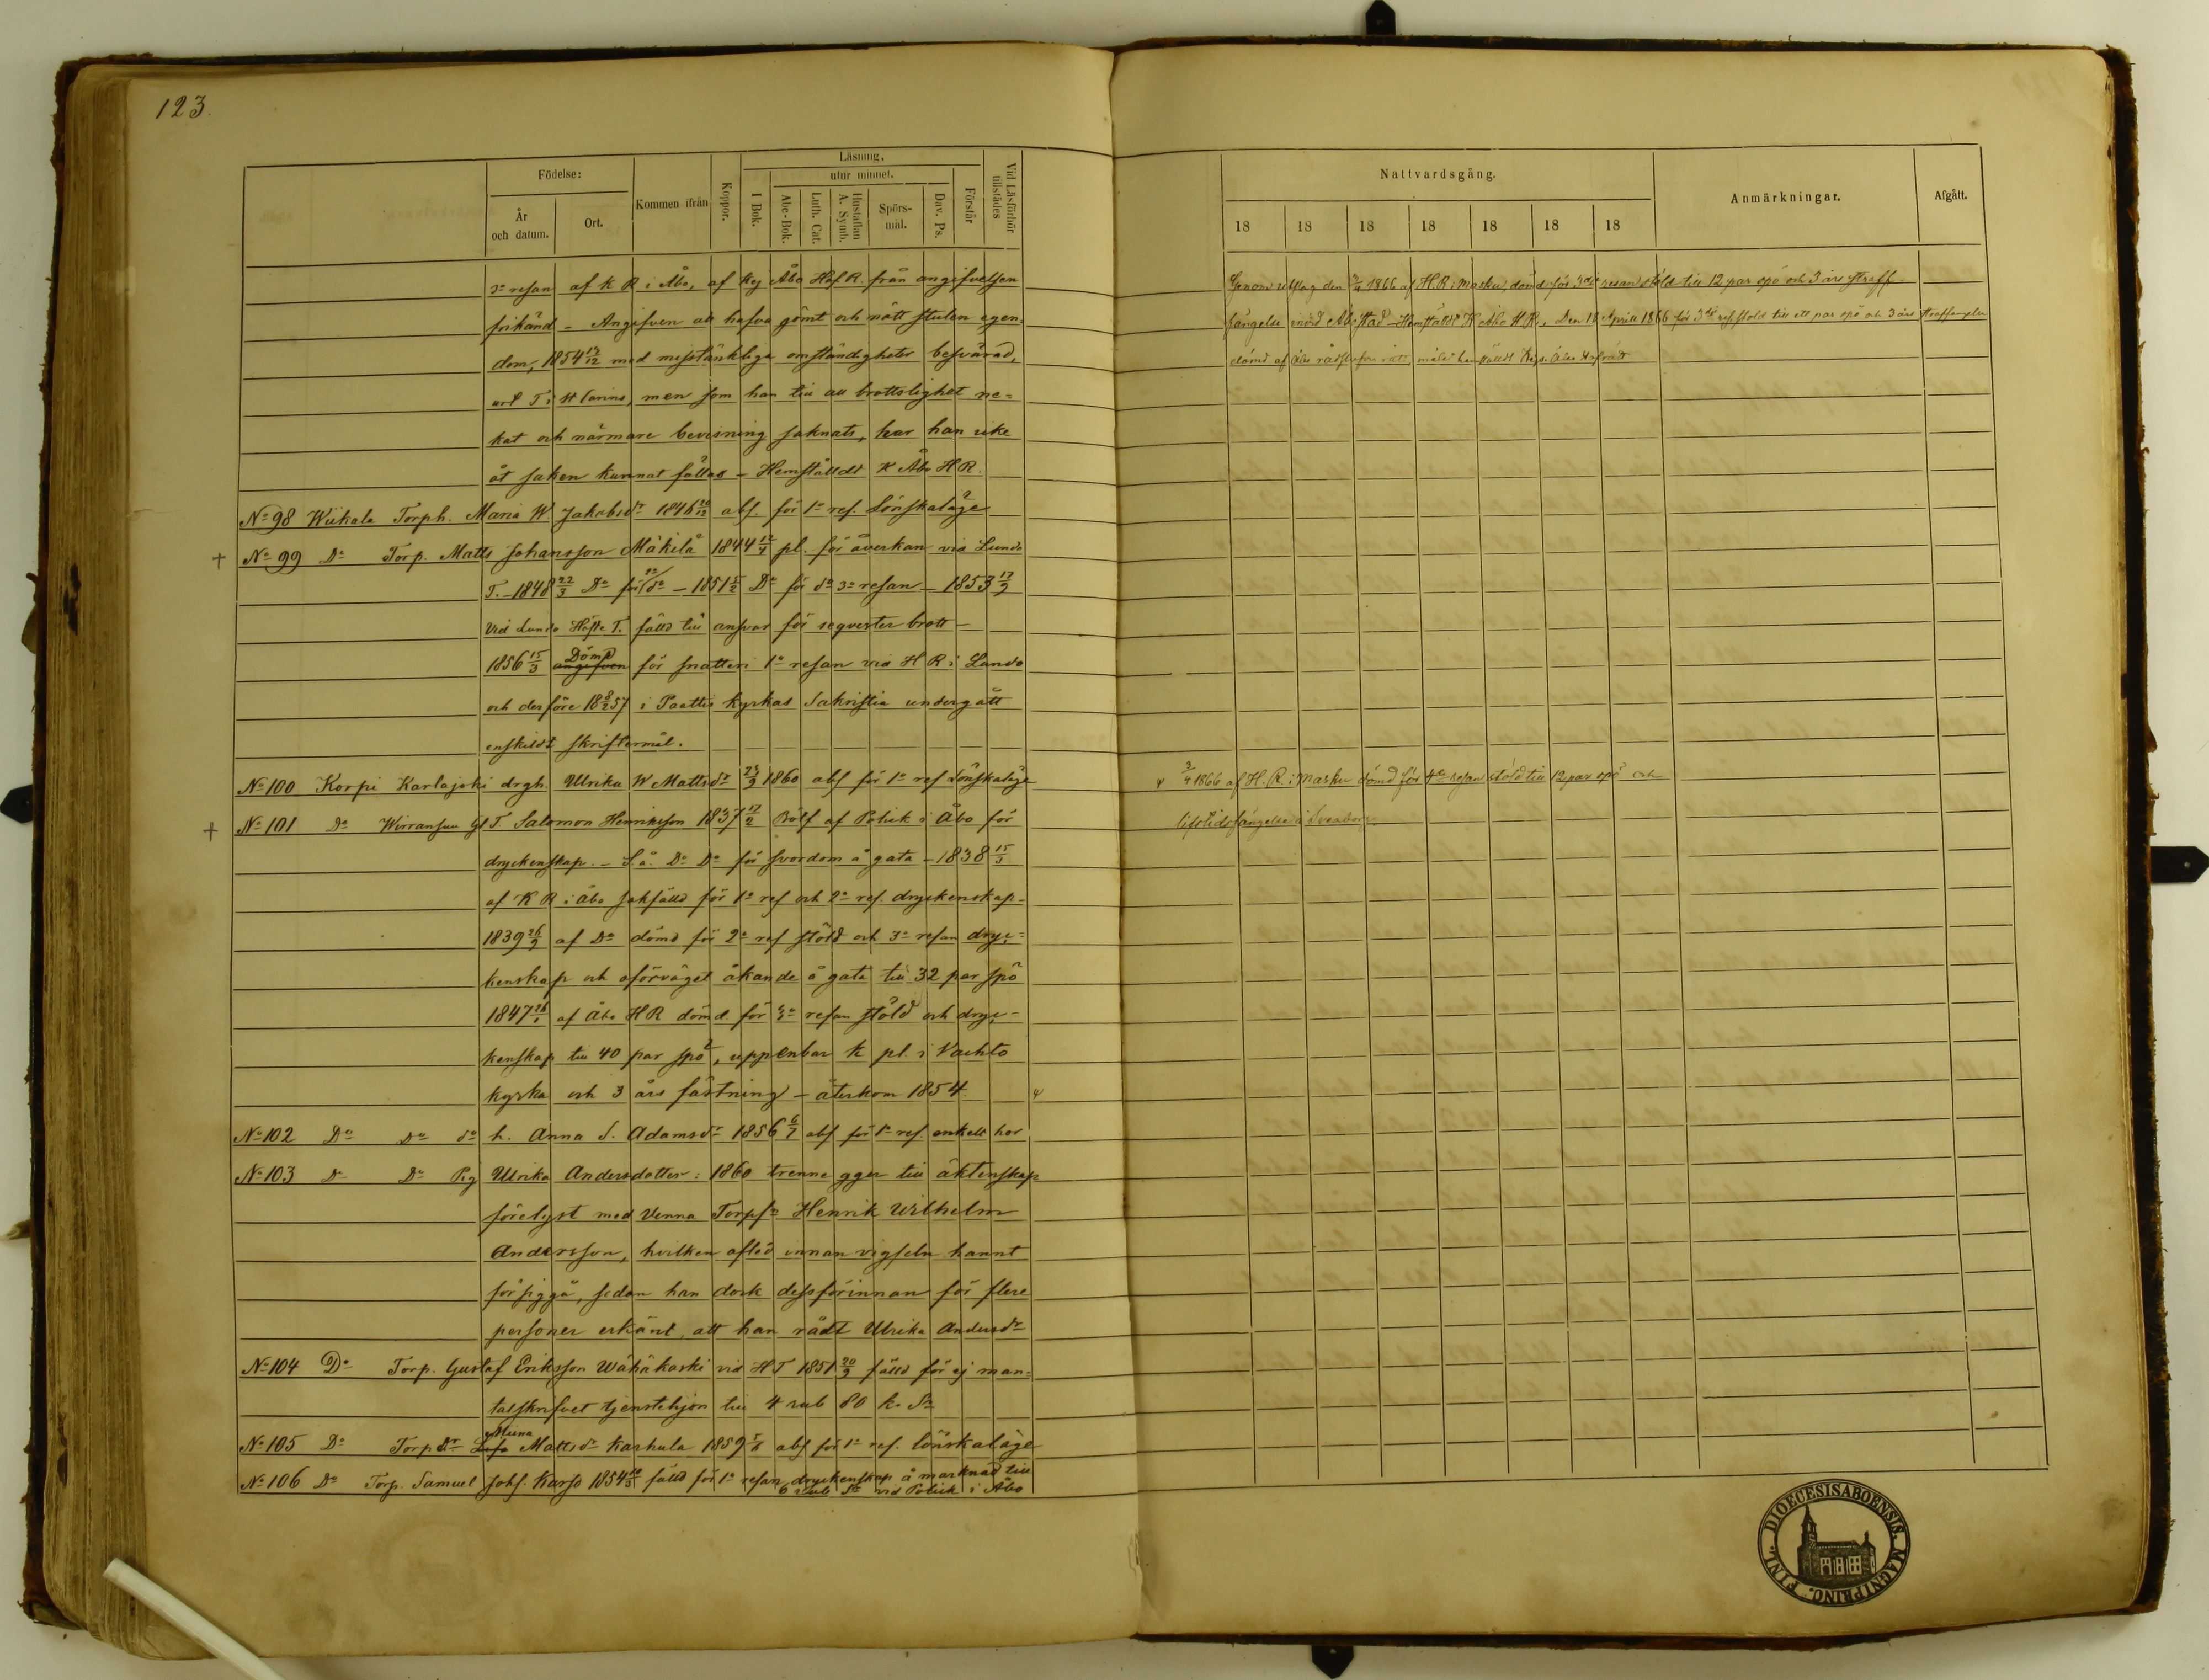 123.
Födelse:
År och datum.
Ort.
Kommen ifrån
Koppor.
Läsning,
I Bok.
utur minnet.
Abc-Bok.
Luth. Cat.
Hustaflan A. Symb.
Spörs-mål.
Dav. Ps.
Förstår
Vid Läsförhör tillstädes
3:e resan af K R i Åbo, af Kej Åbo Hof R. från angifvelsen
frikänd - Angifven att hafva gömt och nött stulen egen-
dom, 1854 19/12 med misstänkliga omständigheter besvärad,
men som han till all brottslighet ne=
kat och närmare bevisning saknats, har han icke
åt saken kunnat fällas - Hemställdt K Åbo H R.
No 98 Wiikala Torph. Maria W Jakobsdr 1846 20/12 abs. för 1a res. Lönskaläge
No 99 Do Torp. Matts Johansson Mäkilä 1844 12/4 pl. för åverkan vid Lundo
T. - 1848 22/3 Do för do - 1851 5/2 Do för do 3a resan - 1853 17/9
vid Lundo Höste T. fälld till ansvar för seqvester brott -
1856 15/3 angifven Dömd för snatteri 1a resan vid H R i Lundo
och derföre 18 8/2 57 i Paattis kyrkas Sakristia undergått
enskildt skriftermål.
No 100 Korpi Karlajoki drgh. Ulrika W Mattsdr 23/9 1860 abs för 1a res Lönskaläge
No 101 Do Wirransuu Gl T Salomon Henriksson 1837 17/2 af Politik i Åbo för
dryckenskap. - S. å. Do Do för svordom å gata - 1838 15/3
af K R i Åbo sakfälld för 1a res och 2a res. dryckenskap-
1839 26/9 af Do dömd för 2a res stöld och 3a resan dryc=
kenskap och oförväget åkande å gata till 32 par spö
1847 26/1 af Åbo HR dömd för 3a resan stöld och dryc-
kenskap till 40 par spö, uppenbar K pl. i Vachto
kyrka och 3 års fästning - återkom 1854.
No 102 Do Do do h. Anna S. Adamsdr 1856 6/7 abs för 1a res. enkelt hor
No 103 Do Do Pig Ulrika Andersdotter: 1860 trenne gger till äktenskap
förelyst med denna Torpsn Henrik Wilhelm
Andersson, hvilken afled innan vigseln hannt
försiggå, sedan han dock dessförinnan för flere
personer erkänt, att han rådt Ulrika Andersdr
No 104 Do Torp. Gustaf Eriksson Wähäkoski vid HT 1851 20/9 fälld för ej man=
talskrifvet tjenstehjon till 4 rub 80 k. Sr
No 105 Do Torpdr Lisa Miina Mattsdr Karhula 1859 5/6 abs för 1a res. lönskaläge
No 106 Do Torp. Samuel Johs. Karjo 1854 10/3 fälld för 1a resan dryckenskap å marknad till
6 rub Sr vid Politik i Åbo
Nattvardsgång.
18 18 18 18 18 18 18
Anmärkningar.
Afgått.
Genom utslag den 3/4 1866 af H.R. i Masku dömd för 3dje resan stöld till 12 par spö och 3 års straff-
fängelse invid Åbo stad - Hemställdt K Åbo H.R. Den 18 April 1866 för 3dje res stöld till ett par spö och 3 års straffängelse
dömd af Åbo målet hemställdt Kejs. Åbo Hofrätt
3/4 1866 af H. R. i Masku dömd för 4de resan stöld till 12 par spö och
lifstidsfängelse i Sveaborg.
DIOECESISABOENSIS. MAGNI PRINC. FINL.